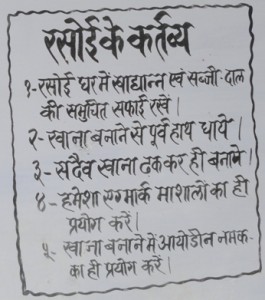 रसोई के कर्तव्य
१- रसोई घर में खाद्यान्न एवं सब्जी-दाल
की समुचित सफाई रखें।
२- खाना बनाने से पूर्व हाथ धायें।
३- सदैव खाना ढककर ही बनाये।
४- हमेशा एगमार्क माशालों का ही
प्रयोग करें।
५- खाना बनाने में आयोडीन नमक-
का ही प्रयोग करें।